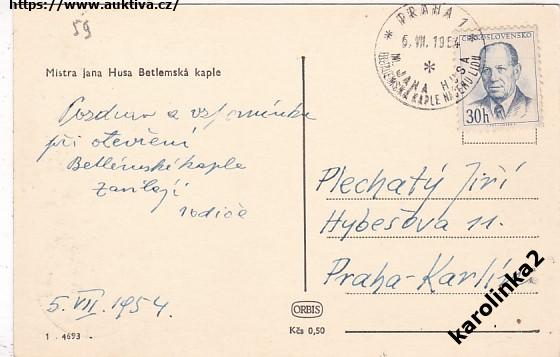 https://www.auktiva.cz/
59
PRAHA 1
5. VII. 1954
M. JANA HUSA
BETLEMSKÁ KAPLE NAŠEMU LIDU
ČESKOSLOVENSKO
30h
Mistra Jana Husa Betlemská kaple
Pozdrav a vzpomínku
při otevření
Betlémské kaple
zasílají
rodiče
5. VII. 1954.
Plechatý Jiří
Hybešova 11.
Praha-Karlín
ORBIS
Kčs 0,50
1 - 4693
karolinka2